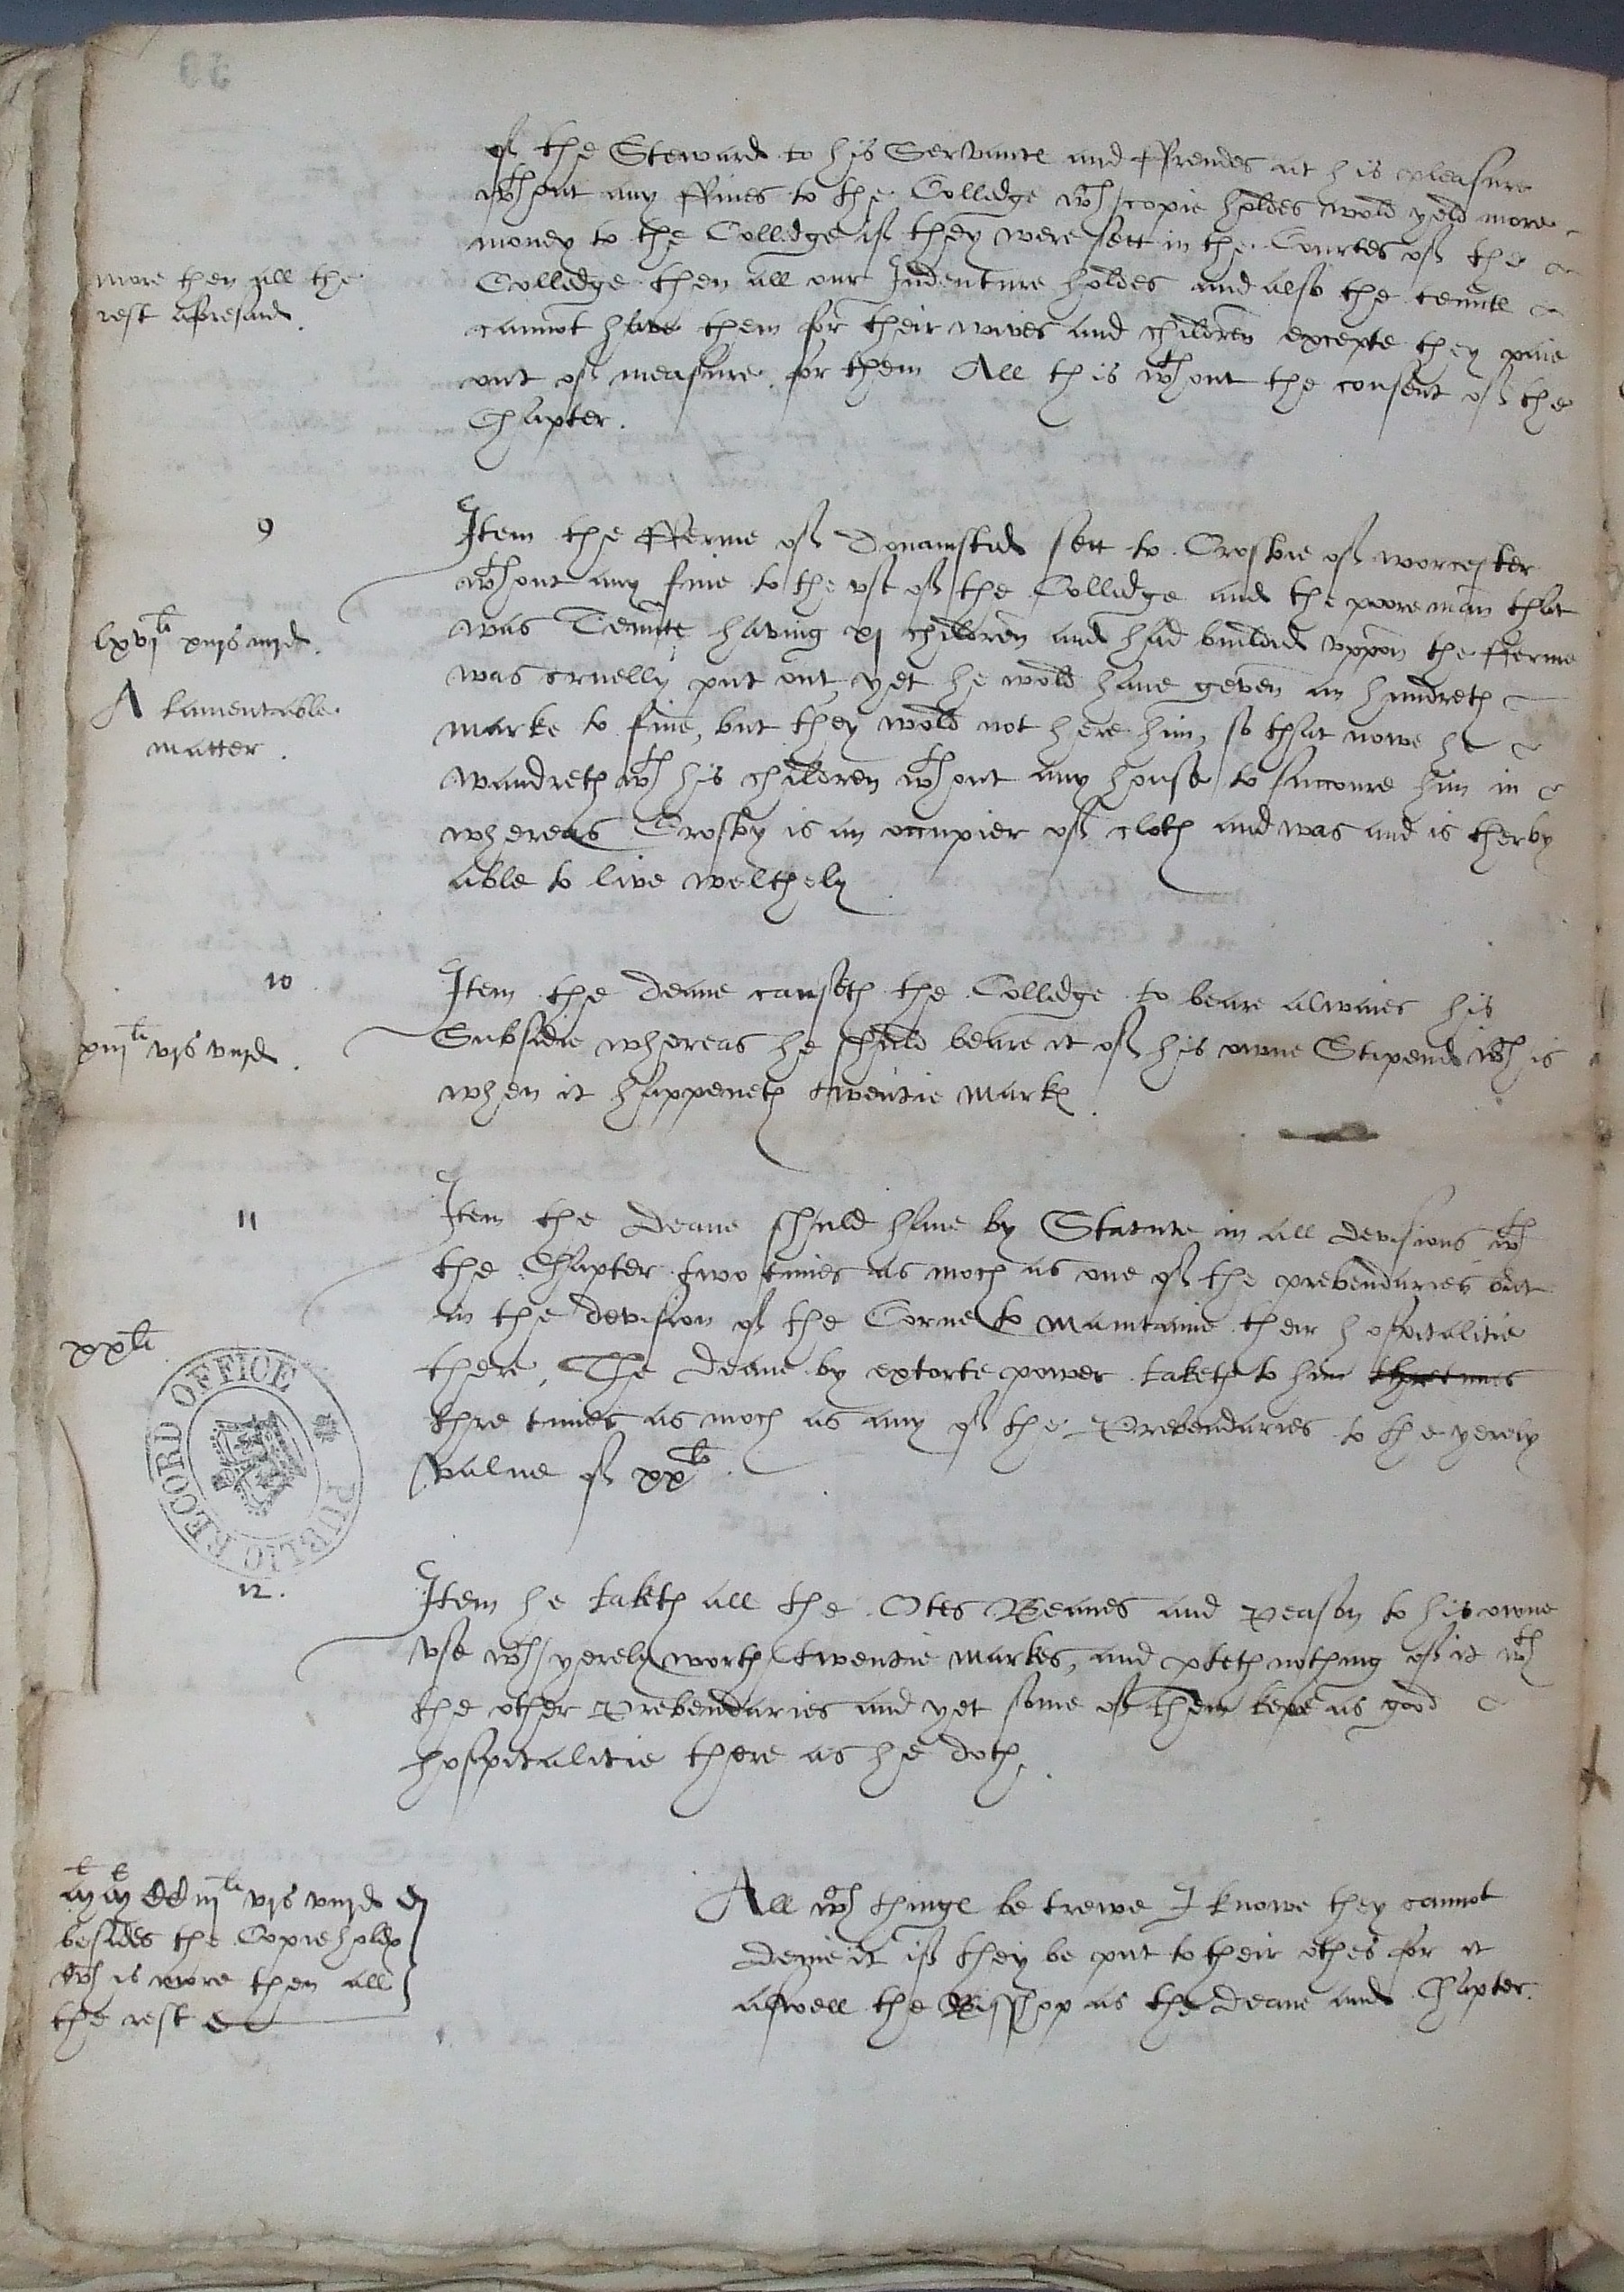 of the Steward to his Servantes and ffrendes at his pleasure
wthout any ffines to the Colledge wch copie holdes wold yeld more
money to the Colledge if they were sett in the Courtes of the
more then all the
rest aforesaid.
Colledge then all our Indenture holdes and also the tenntes
cannot have them for their wives and children excepte they paie
out of measure for them All this wthout the consent of the
Chapter.
9
Item the fferme of sett to Crosbie of worcester
wthout any fine to the use of the Colledge and the poore man that
lxvjli xiijs iiijd.
was Tennte having xj children and had builded uppon the fferme
A lamentable
matter.
was cruelly put out, yet he wold have geven an hundreth
marke to fine, but they wold not here him, so that nowe he
wandreth wth his children wthout any house to succoure him in
whereas Crosby is an occupier of cloth and was and is therby
able to live welthely
10
Item the Deane causeth the Colledge to beare alwaies his
xiijli vjs viijd.
Subsidie whereas he shuld beare it of his owne Stipend wch is
when it happeneth twentie markes
11
Item the Deane shuld have by Statute in all devisions wth
the Chapter two times as moch as one of the prebendaries but
in the devision of the Corne to maintaine their hospitalitie
xxli
there, The Deane by extorte power taketh to him thre times
thre times as moch as any of the Prebendaries to the yerely
value of xxli.
PUBLIC RECORD OFFICE
12.
Item he taketh all the Otes Beanes and Peason to his owne
use wch yerely worth twentie markes, and parteth nothing of it wth
the other Prebendaries and yet some of them kepe as good
hospitalitie there as he doth.
All wch thinges be trewe I knowe they cannot
denie it if they be put to their othes for it
aswell the Bisshop as the Deane and Chapter.
vjs viijd
besides the Copieholdes
wch is more then all
the rest